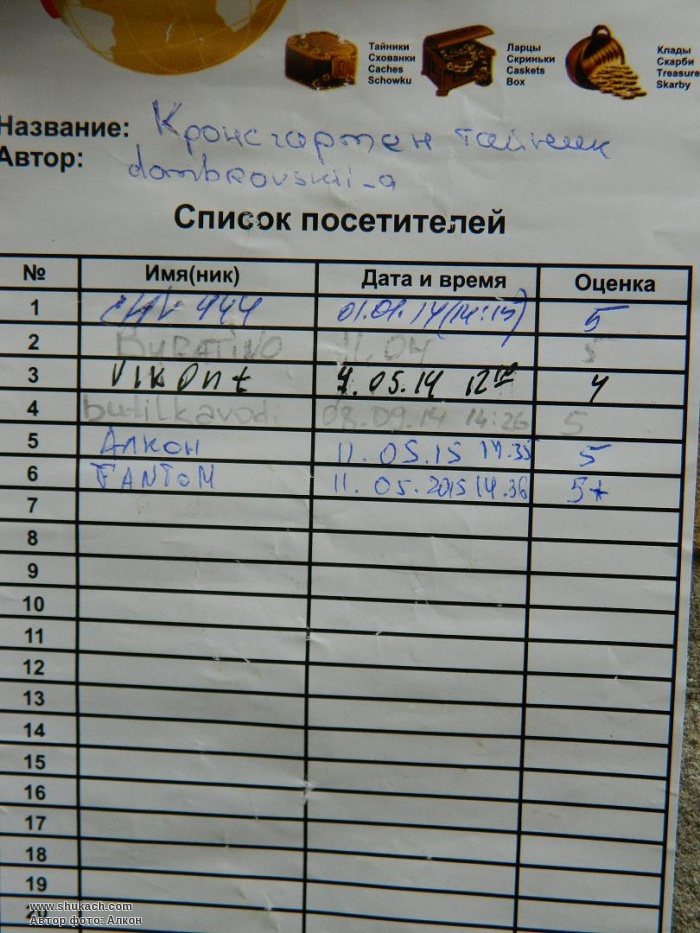 Тайники
Схованки
Caches
Schowku
Ларцы
Скриньки
Caskets
Box
Клады
Скарби
Treasure
Skarby
Название: Кронсгартен тайник
Автор: dombrovskii_a
Список посетителей
№ Имя(ник) Дата и время Оценка
1 01.01.14 (14:15) 5
2 BURATINO 11.04 5
3 VIKONt 05.14 12 4
4 butilkavodi 08.09.14 14:26 5
5 Алкон 11.05.15 14.35 5
6 FANTOM 11.05.2015 14.36 5+
7
8
9
10
11
12
13
14
15
16
17
18
19
20
www.shukach.com
Автор фото: Алкон